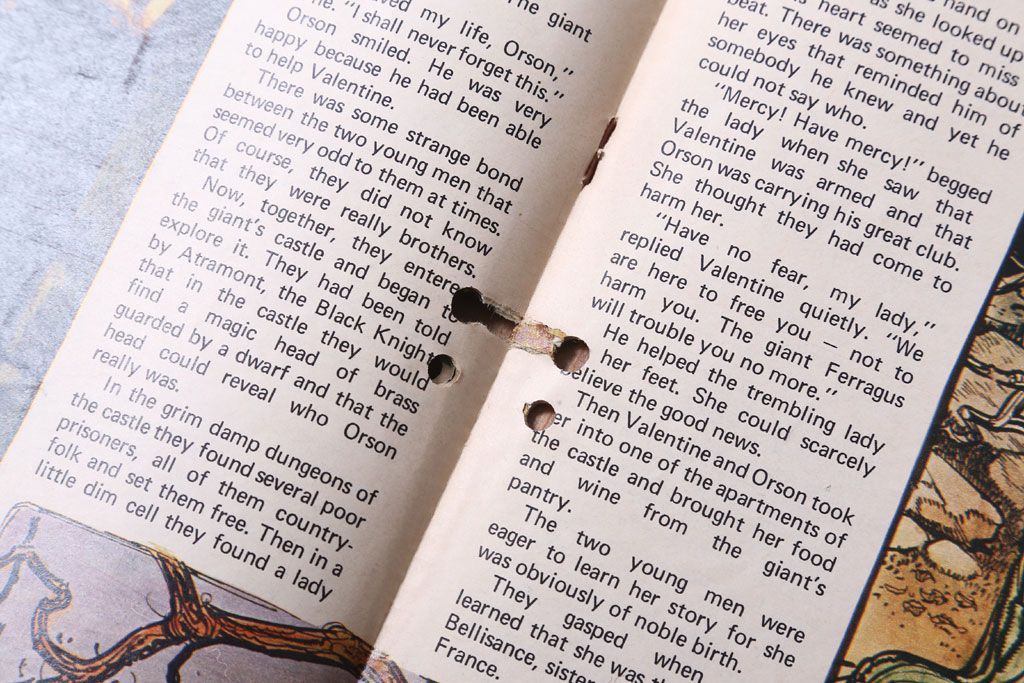 The giant
ved my life, Orson,"
"I shall never forget this."
Orson smiled. He was very
happy because he had been able
to help Valentine.
There was some strange bond
between the two young men that
seemed very odd to them at times.
Of course, they did not know
that they were really brothers.
Now, together, they entere
the giant's castle and began t
explore it. They had been told
by Atramont, the Black Knight
that in the castle they would
find a magic head of brass
guarded by a dwarf and that the
head could reveal who Orson
really was.
In the grim damp dungeons of
the castle they found several poor
prisoners, all of them country-
folk and set them free. Then in a
little dim cell they found a lady
hand on
as she looked up
heart seemed to miss
beat. There was something about
her eyes that reminded him of
somebody he knew and yet he
could not say who.
"Mercy! Have mercy!" begged
the lady when she saw that
Valentine was armed and that
Orson was carrying his great club.
She thought they had come to
harm her.
"Have no fear, my lady,"
replied Valentine quietly. "We
are here to free you – not to
harm you. The giant Ferragus
will trouble you no more."
He helped the trembling lady
her feet. She could scarcely
elieve the good news.
Then Valentine and Orson took
er into one of the apartments of
the castle and brought her food
and wine from the giant's
pantry.
The two young men were
eager to learn her story for she
was obviously of noble birth.
They gasped when
learned that she was
Bellisance, sister
France.